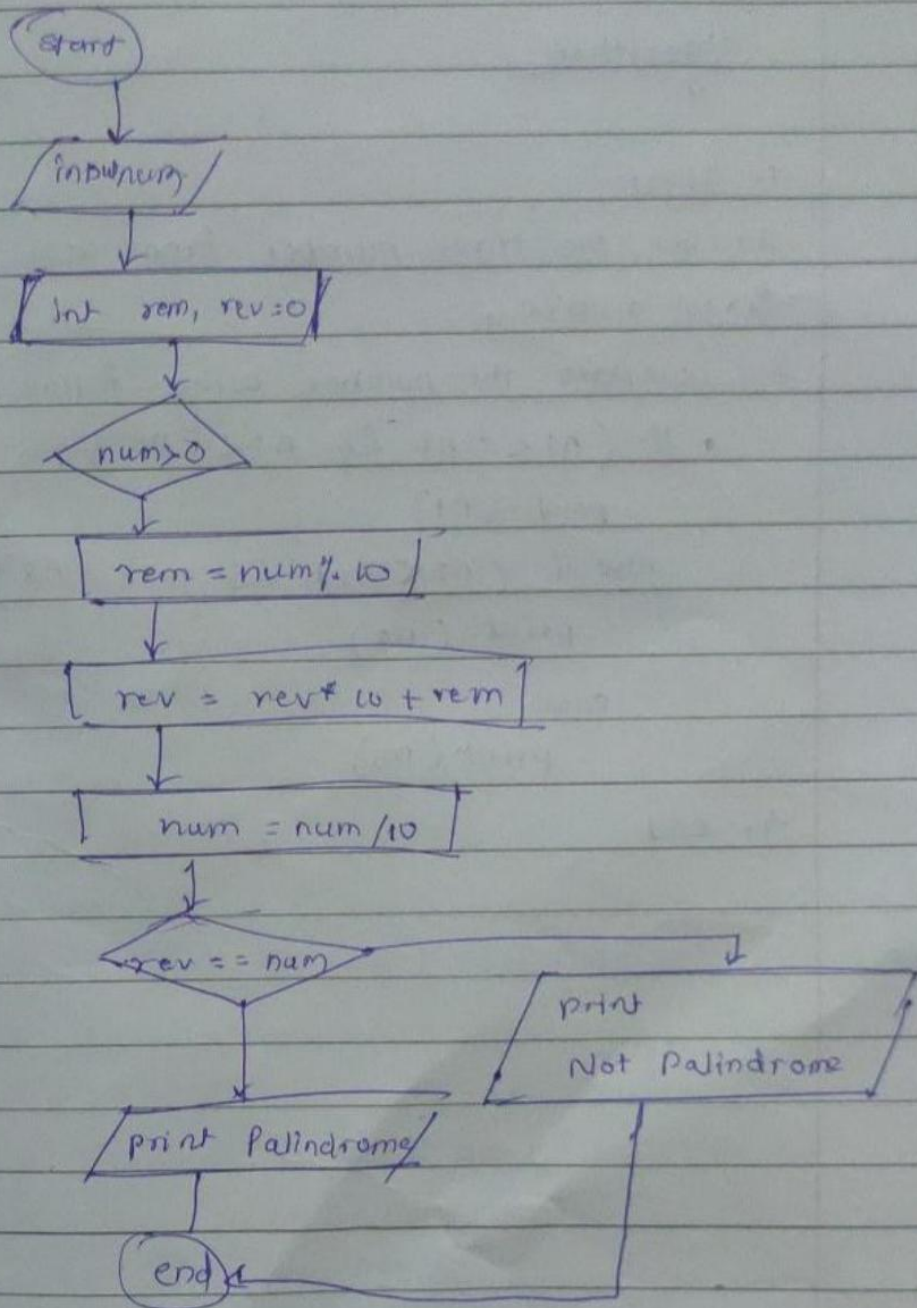 Start
input num
Int rem, rev=0
num>0
rem = num % 10
rev = rev* 10 + rem
num = num /10
rev == num
print
Not Palindrome
print Palindrome
end